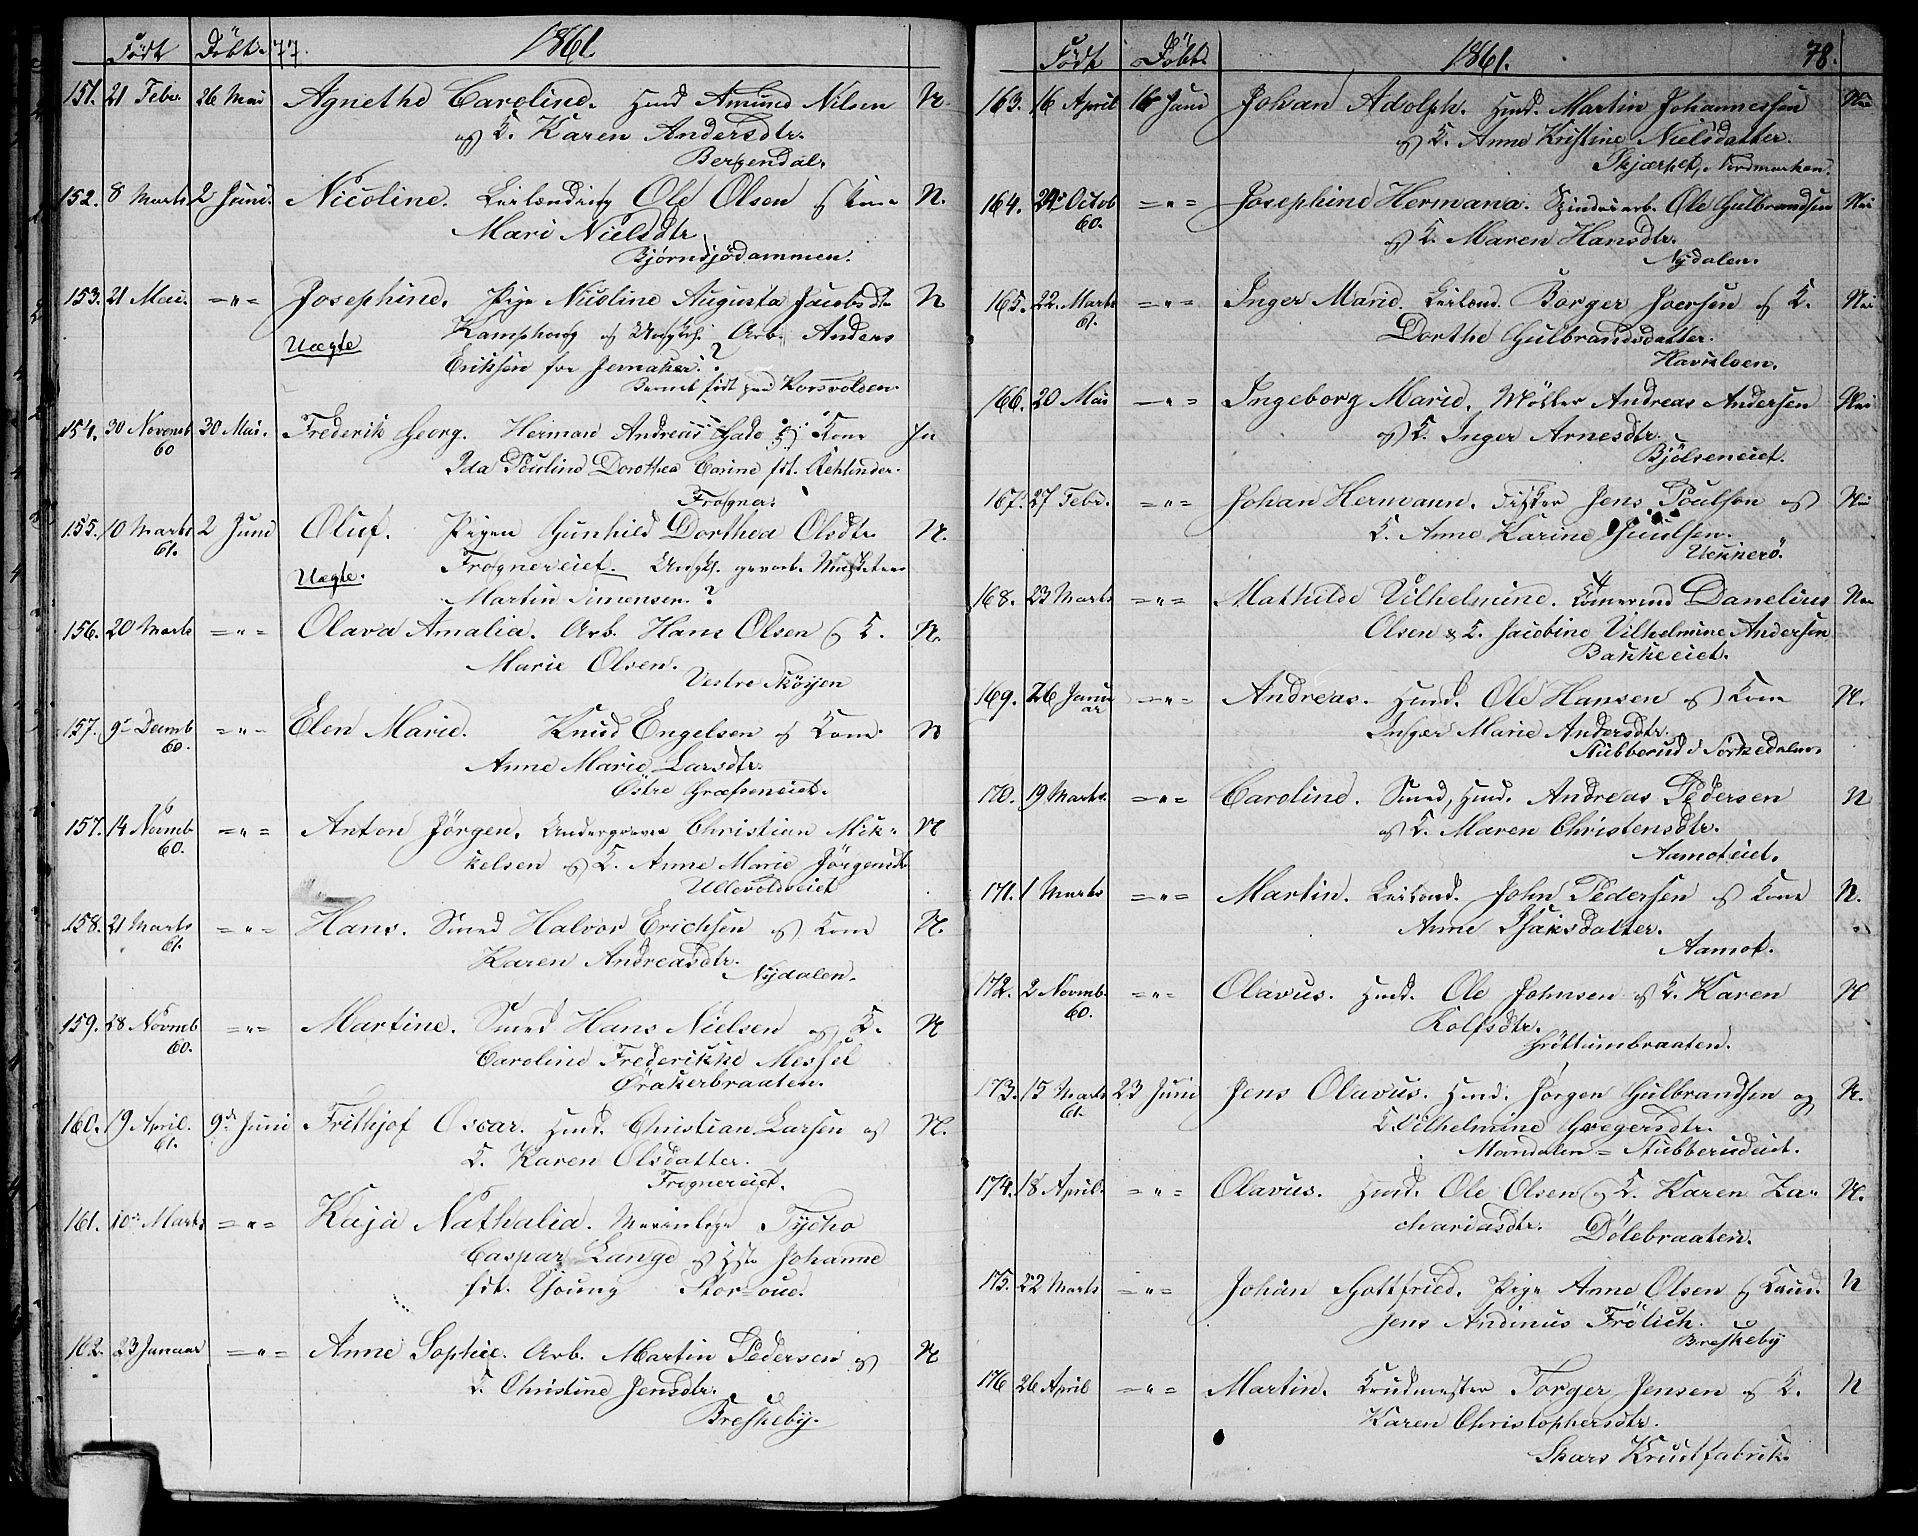 Født Döbt. 77. 1861.
151. 21 Febr. 26 Mai Agnethe Caroline. Huusd Amund Nilsen N.
og K. Karen Andersdtr.
Bergendal.
152. 8 Marts 2 Juni. Nicoline. Leilænding Ole Olsen og Kone N.
Mari Nielsdtr.
Bjørnsjödammen.
153. 21 Mai. =〃= Josephine. Pige Nicoline Augusta Jacobsdtr N
Uægte Kamphoug og Ungk. Arb. Anders
Eriksen fra Jernaker.?
Barnet født paa Korsvolden.
154. 30 Novemb 30 Mai. Frederik Georg. Herman Andreas Gade og Kone Ja
60 Ida Pouline Dorothea Carine fdt. Rehbinder.
Frogner.
155. 10 Marts 2 Juni Oluf. Pigen Gunhild Dorthea Olsdtr. N.
61. Frognereiet. Ungk. gevorb. Musketeer
Uægte. Martin Simensen.?
156. 20 Marts =〃= Olava Amalia. Arb. Hans Olsen og K. N.
Marie Olsen.
Vestre Skøyen
157. 9 Decmb =〃= Elen Marie. Knud Engelsen og Kone. N
60. Anne Marie Larsdtr.
Östre Græfseneiet.
157. 14 Novmb =〃= Anton Jörgen. Undergraver Christian Mik= N
60. kelsen og K. Anne Marie Jörgensdtr
Ullevoldseiet
158. 21 Marts =〃= Hans. Smed Halvor Erichsen og Kone N.
61. Karen Andreasdtr.
Nydalen.
159. 28 Novmb =〃= Martine. Smed Hans Nielsen og K. N
60. Caroline Frederikke Messel
Ørakerbraaten.
160. 19 April. 9de Juni Frithjof Oscar. Huusd. Christian Larsen og N.
61. K. Karen Olsdatter.
Frognereiet.
161. 10 Marts =〃= Kaja Nathalia. Marinlæge Tycho
Caspar Lange og Hstr Johanne
fdt. Young Stor=oue.
162. 23 Januar =〃= Anne Sophie. Arb. Martin Pedersen og N
K. Christine Jensdtr.
Breskeby.
Født Döbt. 1861. 78.
163. 16 April 16 Juni Johan Adolph. Huusd. Martin Johannessen Nei
og K. Anne Kristine Nielsdatter.
Skjærpet, Nordmarken.
164. 24 Octob =〃= Josephine Hermana. Spinderiarb. Ole Gulbrandsen Nei
60. og K. Maren Hansdtr.
Nydalen.
165. 22 Marts =〃= Inger Marie. Leilænd. Borger Joersen og K. Nei
61. Dorthe Gulbrandsdatter.
Havnloen.
166. 20 Mai =〃= Ingeborg Marie. Möller Andreas Andersen Nei
og K. Inger Arnesdtr.
Bjölseneiet.
167. 27 Febr. =〃= Johan Hermann. Fisker Jens Poulsen og Nei
K. Anne Karine Juulsen.
Uckkerö.
168. 23 Marts =〃= Mathilde Vilhelmine. Danelius Nei
Olsen & K. Jacobine Vilhelmine Andersen
Bakkeeiet.
169. 26 Janu =〃= Andreas. Huusd. Ole Hansen og Kone N.
ar Inger Marie Andersdtr.
Stubberud i Sørkedalen.
170. 19 Marts =〃= Caroline. Smed, Huusd. Andreas Pedersen N
og K. Maren Christensdtr.
Aamoteiet.
171. 1 Marts =〃= Martin. Leilænd. John Pedersen og Kone N.
Anne Isaksdatter.
Aamot.
172. 2 Novmb. =〃= Olavus. Huusd. Ole Johnsen og K. Karen N
60. Rolfsdtr.
Gröttumbraaten.
173. 15 Marts 23 Juni Jens Olavus. Huusd. Jörgen Gulbrandsen og N.
61. K. Vilhelmine Gregersdtr.
Mandalen = Stubberudeiet.
174. 18 April. =〃= Olavus. Huusd. Ole Olsen og K. Karen Za= N.
chariasdtr. Dölebraaten.
175. 22 Marts =〃= Johan Gottfried. Pige Anne Olsen og N
Jens Andinus Frölich.
Breskeby
176 26 April =〃= Martin. Krudmester Torger Jensen og K. N
Karen Christophersdtr.
Skars Krudfabrik.